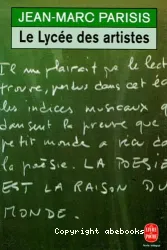 JEAN-MARC PARISIS
Le Lycée des artistes
Il me plairait que le lect
trouve, perdus dans cet
les indices musicaux
dansent la preuve que
petit monde a réa
la poésie. LA POESIE
EST LA RAISON DU
MONDE.
Copyright abebooks
LE LIVRE DE POCHE